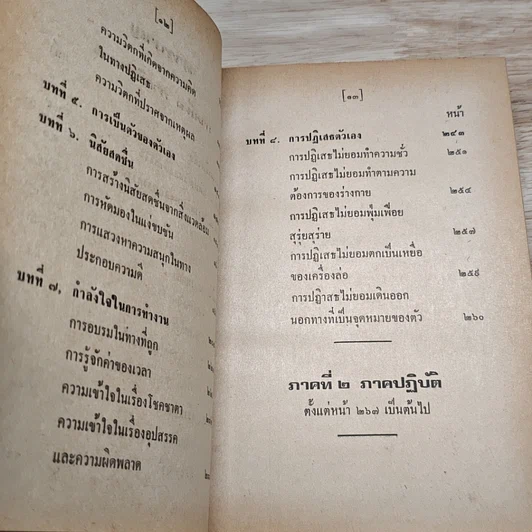 [๑๒]
ความวิตกที่เกิดจากความคิด
ในทางปฏิเสธ
ความวิตกที่ปราศจากเหตุผล
บทที่ ๕. การเป็นตัวของตัวเอง
บทที่ ๖. นิสัยสดชื่น
การสร้างนิสัยสดชื่นจากสิ่งแวดล้อม
การหัดมองในแง่ขบขัน
การแสวงหาความสนุกในทาง
ประกอบความดี
บทที่ ๗. กำลังใจในการทำงาน
การอบรมในทางที่ถูก
การรู้จักค่าของเวลา
ความเข้าใจในเรื่องโชคชาตา
ความเข้าใจในเรื่องอุปสรรค
และความผิดพลาด
[๑๓]
หน้า
บทที่ ๘. การปฏิเสธตัวเอง ๒๔๓
การปฏิเสธไม่ยอมทำความชั่ว ๒๕๑
การปฏิเสธไม่ยอมทำตามความ
ต้องการของร่างกาย ๒๕๔
การปฏิเสธไม่ยอมฟุ่มเฟือย
สุรุ่ยสุร่าย ๒๕๗
การปฏิเสธไม่ยอมตกเป็นเหยื่อ
ของเครื่องล่อ ๒๕๙
การปฏิเสธไม่ยอมเดินออก
นอกทางที่เป็นจุดหมายของตัว ๒๖๐
ภาคที่ ๒ ภาคปฏิบัติ
ตั้งแต่หน้า ๒๖๗ เป็นต้นไป